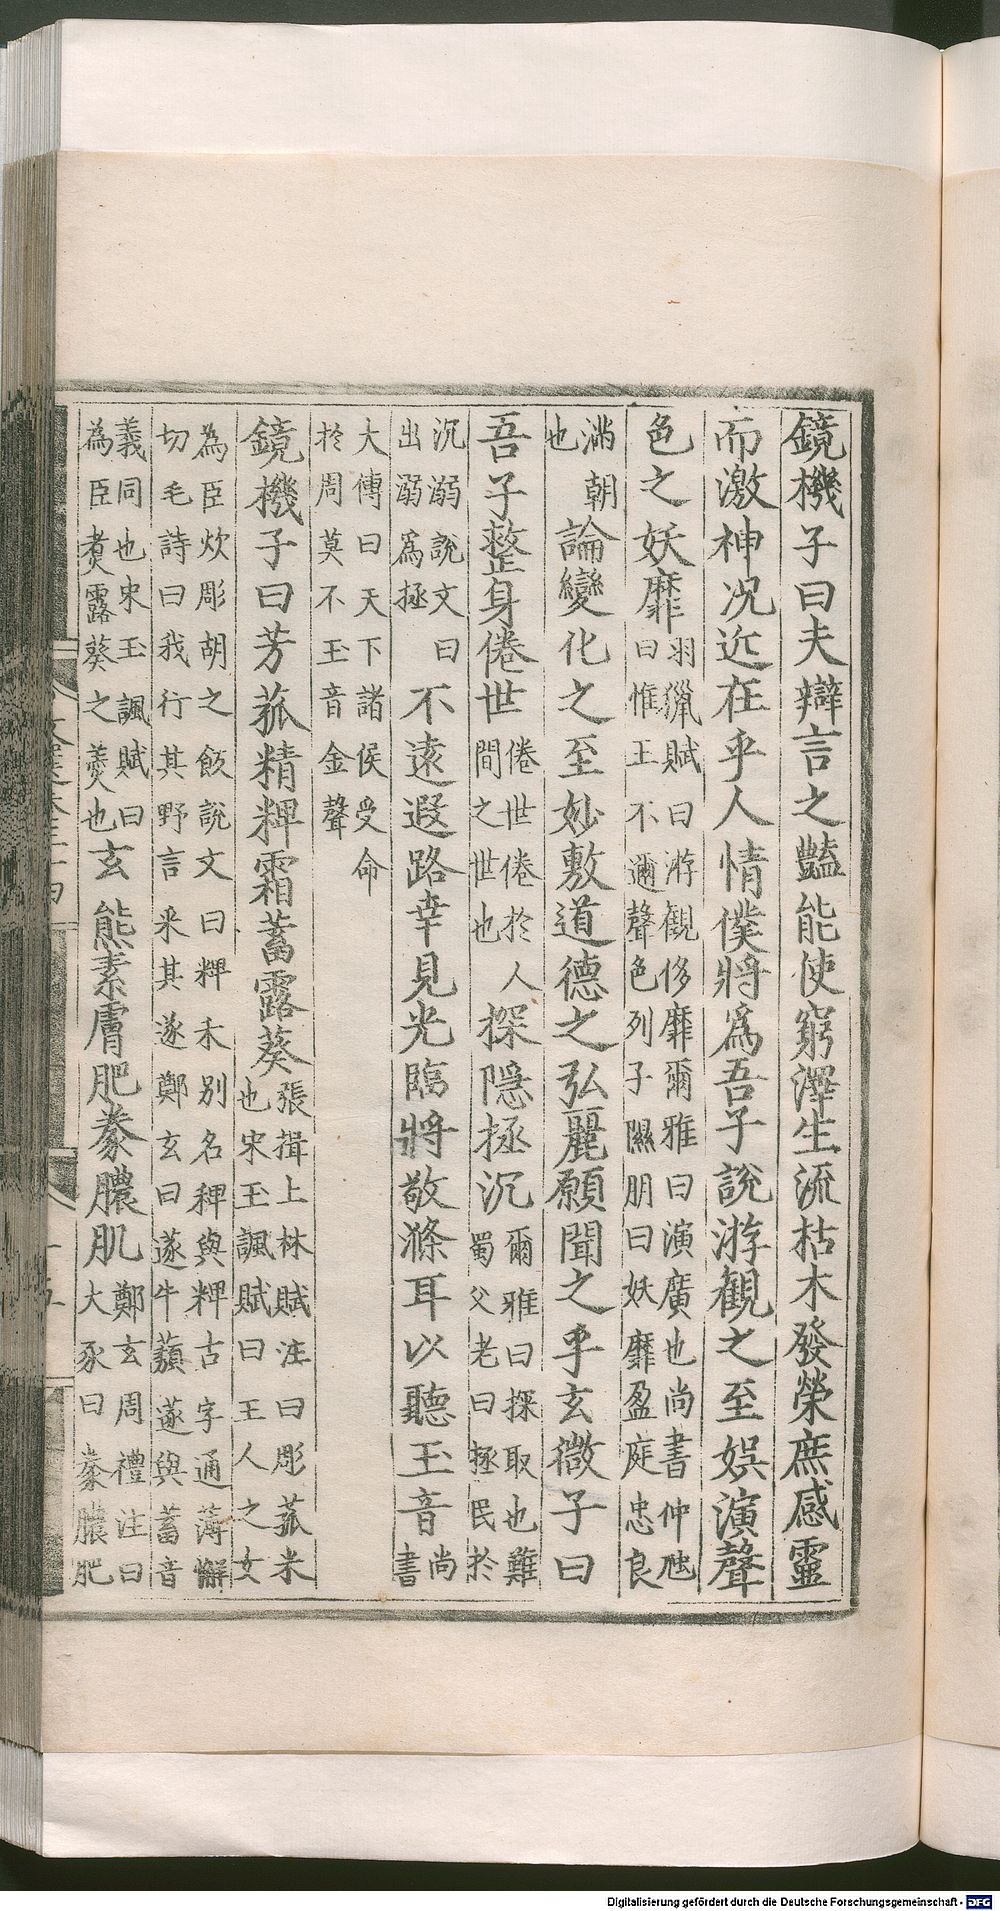 鏡機子曰夫辯言之豔能使窮澤生流枯木發榮庶感靈
而激神况近在乎人情僕將爲吾子說游觀之至娛演聲
色之妖靡羽獵賦曰游觀侈靡爾雅曰演廣也尚書仲虺曰惟王不邇聲色列子隰朋曰妖靡盈庭忠良
滿朝也論變化之至妙敷道德之弘麗願聞之乎玄微子曰
吾子整身倦世倦世倦於人間之世也探隱拯沉爾雅曰探取也難蜀父老曰拯民於
沉溺說文曰出溺爲拯不遠遐路幸見光臨將敬滌耳以聽玉音尚書
大傳曰天下諸侯受命於周莫不玉音金聲
鏡機子曰芳菰精粺霜蓄露葵張揖上林賦注曰彫菰米也宋玉諷賦曰主人之女
為臣炊彫胡之飯說文曰粺禾別名稗與粺古字通薄懈切毛詩曰我行其野言采其蓫鄭玄曰蓫牛蘈蓫與蓄音
義同也宋玉諷賦曰為臣煑露葵之羹也玄熊素膚肥豢膿肌鄭玄周禮注曰大豕曰豢膿肥
Digitalisierung gefördert durch die Deutsche Forschungsgemeinschaft - DFG